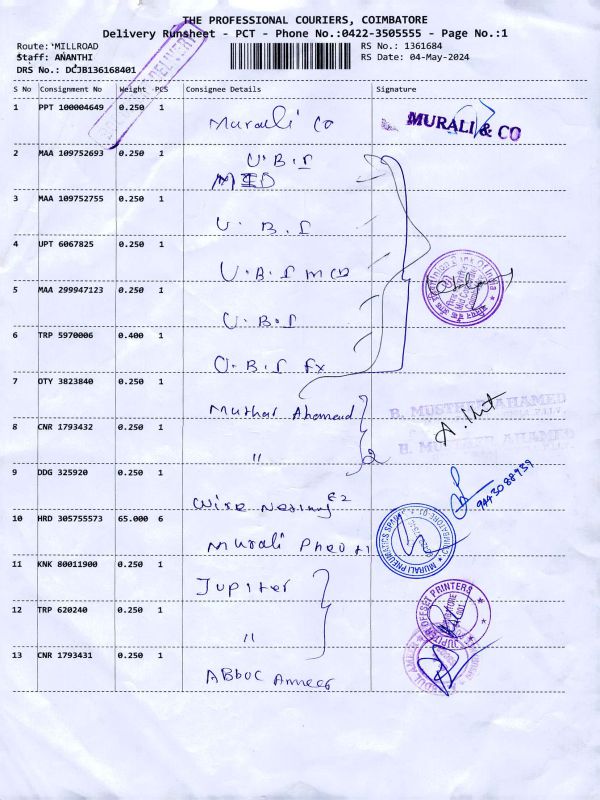 THE PROFESSIONAL COURIERS, COIMBATORE
Delivery Runsheet - PCT - Phone No.:0422-3505555 - Page No.:1
Route: MILLROAD
Staff: ANANTHI
DRS No.: DCJB136168401
RS No.: 1361684
RS Date: 04-May-2024
S No Consignment No Weight PCS Consignee Details Signature
1 PPT 100004649 0.250 1 Murali Co MURALI & CO
2 MAA 109752693 0.250 1 U.B.I
3 MAA 109752755 0.250 1 U.B.I
4 UPT 6067825 0.250 1 U.B.I
5 MAA 299947123 0.250 1 U.B.I
6 TRP 5970006 0.400 1 U.B.I Fx
7 OTY 3823840 0.250 1 Muthar Ahamead
8 CNR 1793432 0.250 1 "
9 DDG 325920 0.250 1 9443088939
10 HRD 305755573 65.000 6 Murali
11 KNK 80011900 0.250 1 Jupiter
12 TRP 620240 0.250 1 " JUPITER OFFSET PRINTERS
13 CNR 1793431 0.250 1